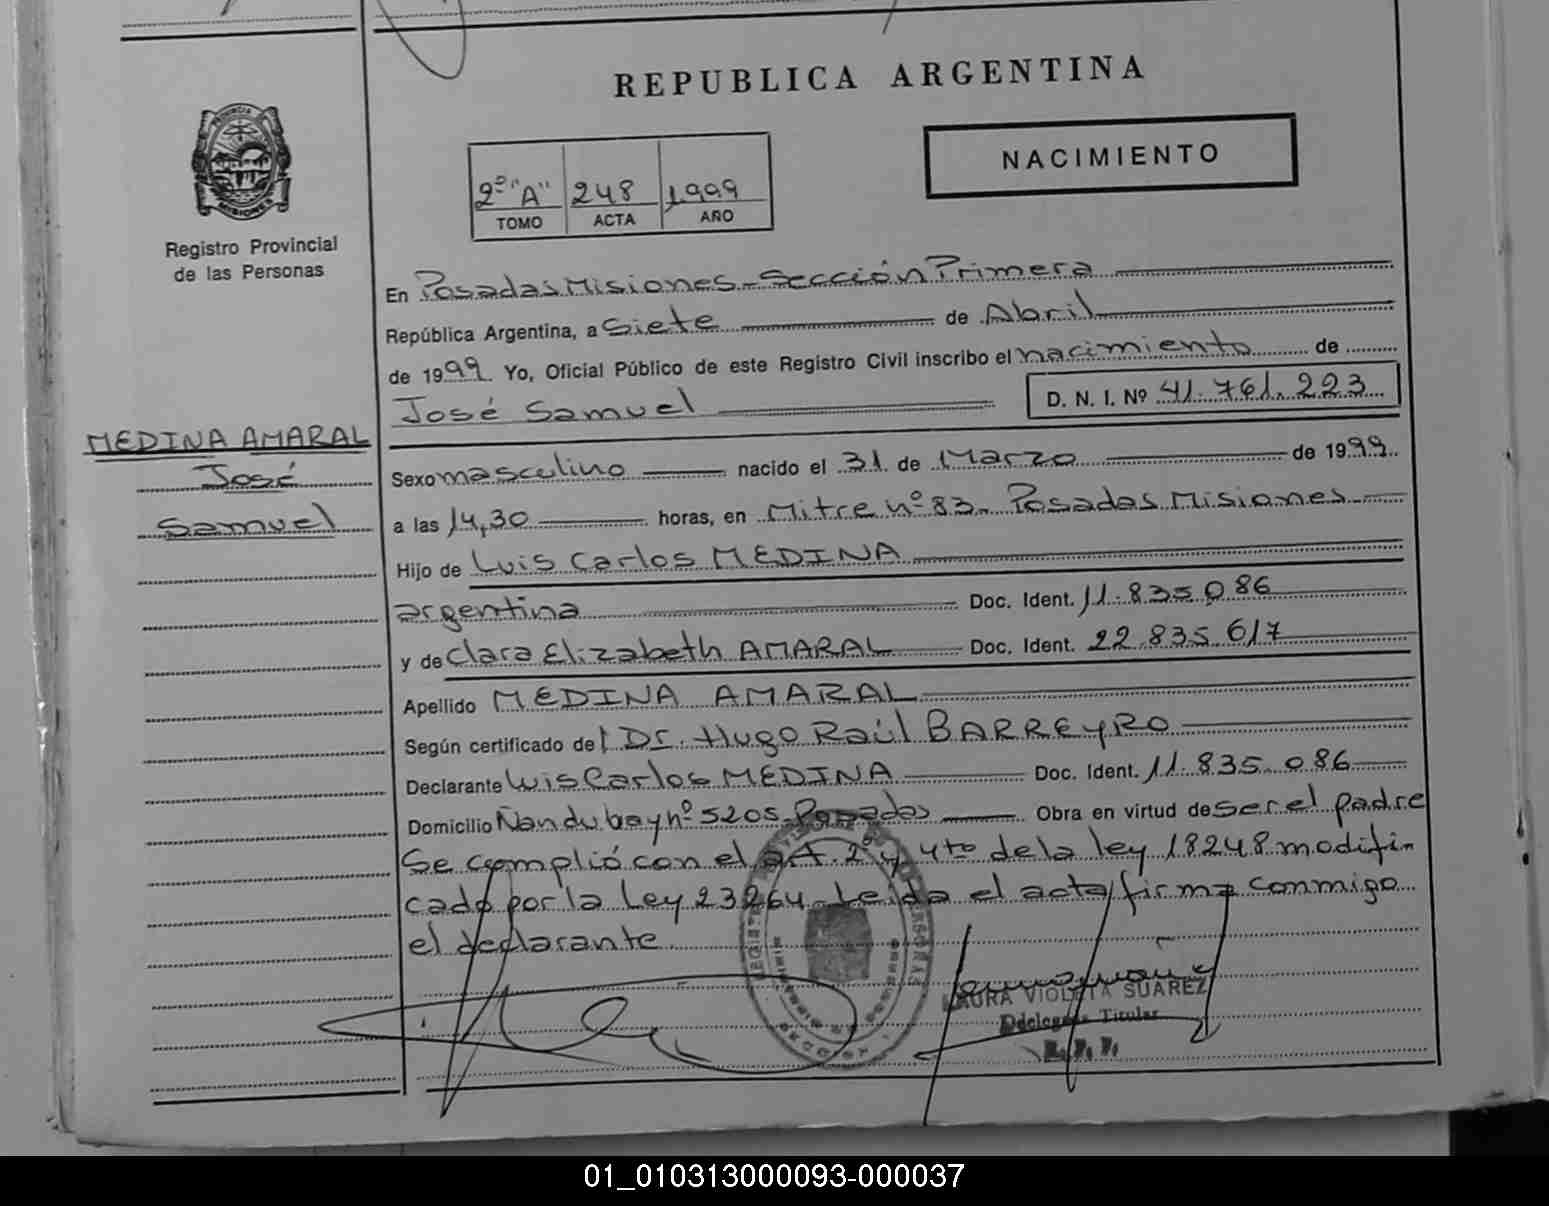 REPUBLICA ARGENTINA
NACIMIENTO
2º "A" 248 1999
TOMO ACTA AÑO
PROVINCIA
MISIONES
Registro Provincial
de las Personas
En Posadas Misiones - Sección Primera
República Argentina, a Siete de Abril
de 1999 Yo, Oficial Público de este Registro Civil inscribo el nacimiento de
José Samuel D. N. I. Nº 41.761.223
MEDINA AMARAL
José
Samuel
Sexo masculino nacido el 31 de Marzo de 1999
a las 14,30 horas, en Mitre nº 83 - Posadas Misiones
Hijo de Luis Carlos MEDINA
argentina Doc. Ident. 11.835.086
y de Clara Elizabeth AMARAL Doc. Ident. 22.835.617
Apellido MEDINA AMARAL
Según certificado del Dr. Hugo Raúl BARREYRO
Declarante Luis Carlos MEDINA Doc. Ident. 11.835.086
Domicilio Ñandubay nº 5205 - Posadas Obra en virtud de ser el padre
Se cumplió con el art. 2º y 4to de la ley 18248 modifi-
cado por la Ley 23264 - Leída el acta, firma conmigo
el declarante
LAURA VIOLETA SUAREZ
Ddelegada Titular
R. P. P.
01_010313000093-000037